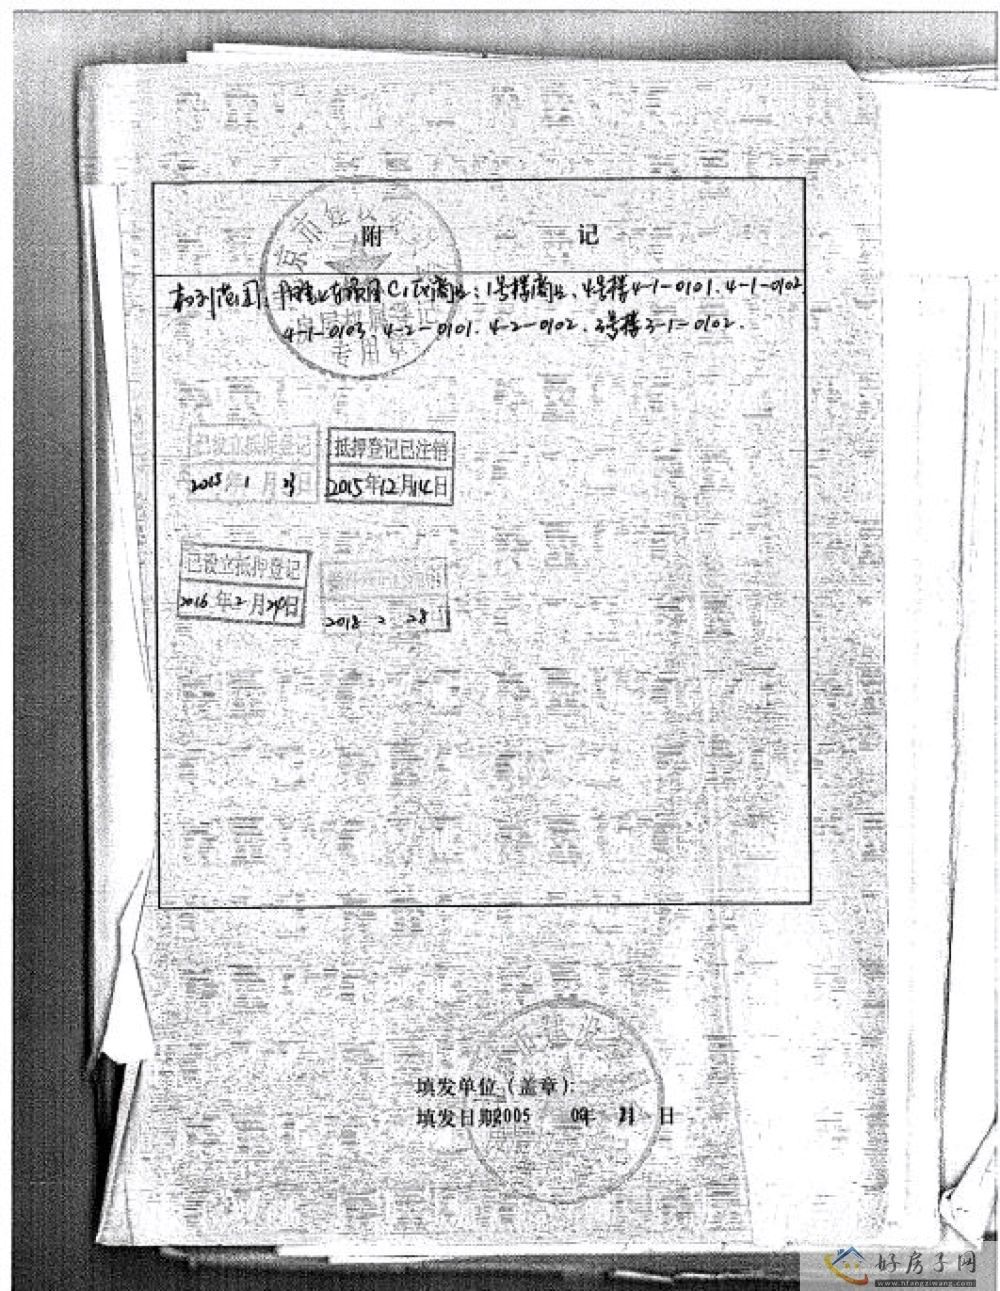 附 记
权利范围: C, 1号楼商业、4号楼4-1-0101、4-1-0102
4-1-0103、4-2-0101、4-2-0102、3号楼3-1-0102.
房屋权属登记
专用章
已设立抵押登记 抵押登记已注销
2015年1月23日 2015年12月14日
已设立抵押登记
2016年2月24日 2018 2 28日
市建设
填发单位(盖章):
填发日期2005 09年 21 日
好房子网
www.hfangziwang.com